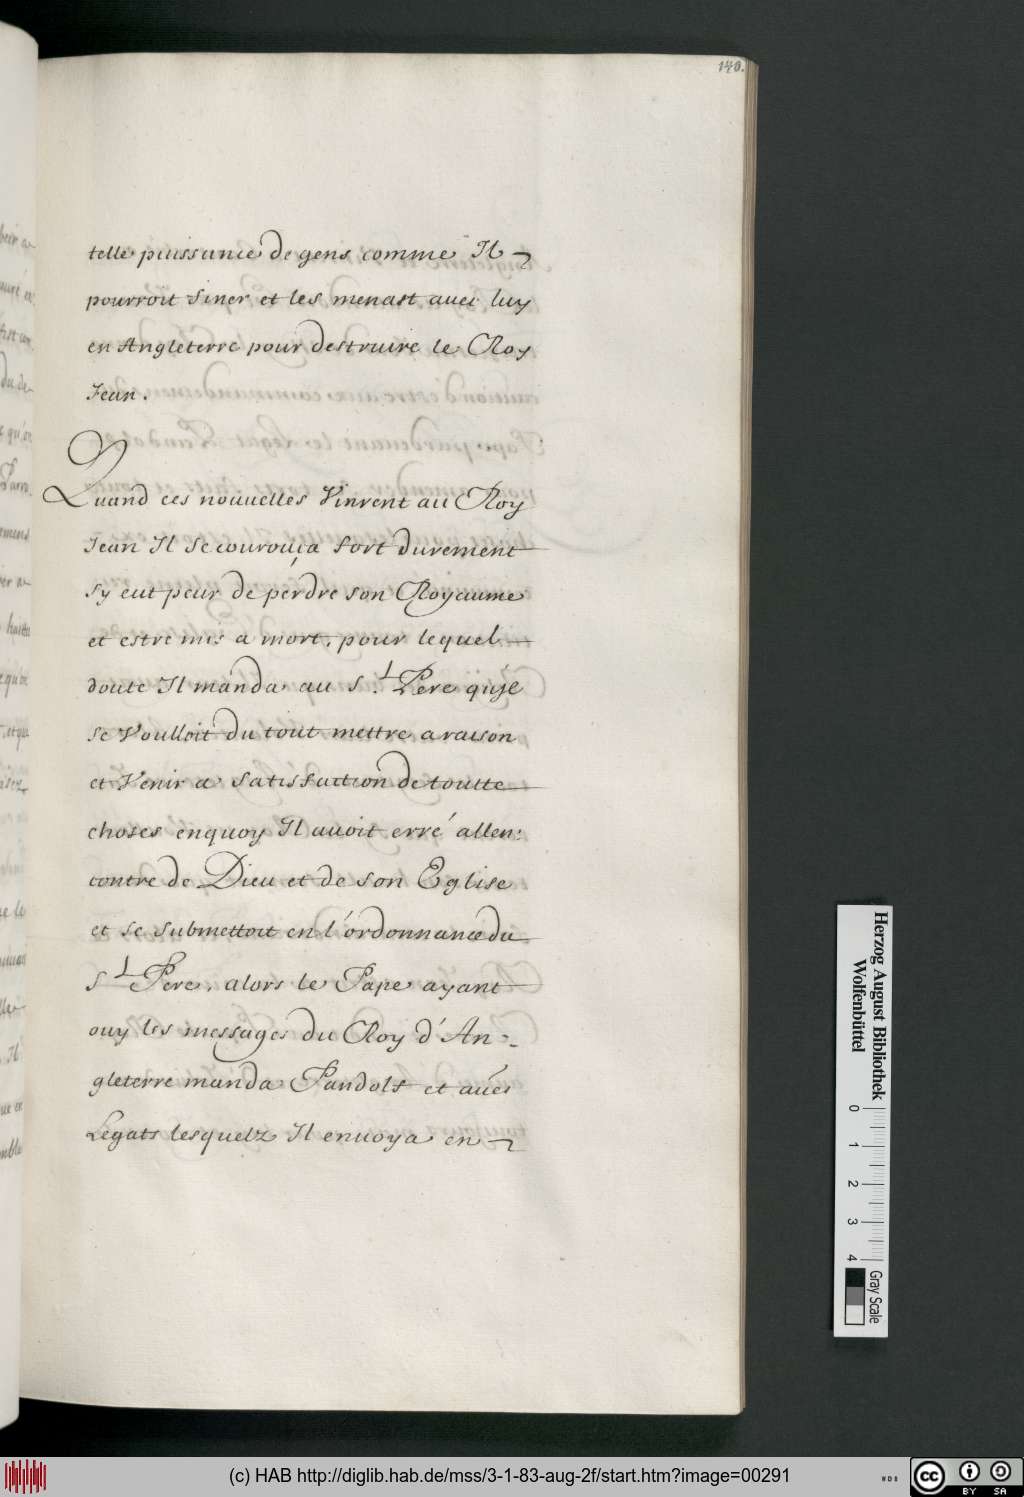 140.
telle puissance de gens comme Il
pourroit finer et les menast avec luy
en Angleterre pour destruire le Roy
Jean.
Quand ces nouvelles Vinrent au Roy
Jean Il se courouça fort durement
sy eut peur de perdre son Royaume
et estre mis a mort, pour lequel
doute Il manda au S.t Pere quil
se Voulloit du tout mettre a raison
et Venir a satisfaction de toutte
choses enquoy Il avoit erré allen:
contre de Dieu et de son Eglise
et se submettoit en l'ordonnance du
St Pere, alors le Pape ayant
ouy les messages du Roy d'An-
gleterre manda Pandolf et
Legats lesquelz Il envoya en
Herzog August Bibliothek
Wolfenbüttel
0 1 2 3 4
Gray Scale
(c) HAB http://diglib.hab.de/mss/3-1-83-aug-2f/start.htm?image=00291
WDB
cc BY SA